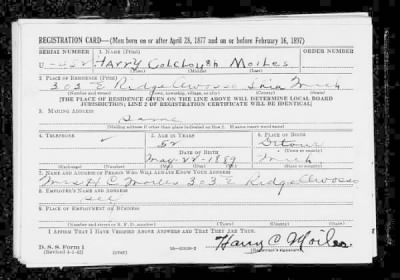 REGISTRATION CARD—(Men born on or after April 28, 1877 and on or before February 16, 1897)
SERIAL NUMBER 1. NAME (Print) ORDER NUMBER
U Harry Colclough Moiles
(First) (Middle) (Last)
2. PLACE OF RESIDENCE (Print)
303 E Ridge Owosso Shia Mich
(Number and street) (Town, township, village, or city) (County) (State)
[THE PLACE OF RESIDENCE GIVEN ON THE LINE ABOVE WILL DETERMINE LOCAL BOARD
JURISDICTION; LINE 2 OF REGISTRATION CERTIFICATE WILL BE IDENTICAL]
3. MAILING ADDRESS
Same
(Mailing address if other than place indicated on line 2. If same insert word same)
4. TELEPHONE 5. AGE IN YEARS 6. PLACE OF BIRTH
52 Detour
DATE OF BIRTH (Town or county)
May 22 - 1889 Mich
(Exchange) (Number) (Mo.) (Day) (Yr.) (State or country)
7. NAME AND ADDRESS OF PERSON WHO WILL ALWAYS KNOW YOUR ADDRESS
Mrs H C Moiles 303 E Ridge Owosso
8. EMPLOYER'S NAME AND ADDRESS
9. PLACE OF EMPLOYMENT OR BUSINESS
(Number and street or R. F. D. number) (Town) (County) (State)
I AFFIRM THAT I HAVE VERIFIED ABOVE ANSWERS AND THAT THEY ARE TRUE.
D. S. S. Form 1
(Revised 4-1-42) (over) Harry C Moiles
(Registrant's signature)